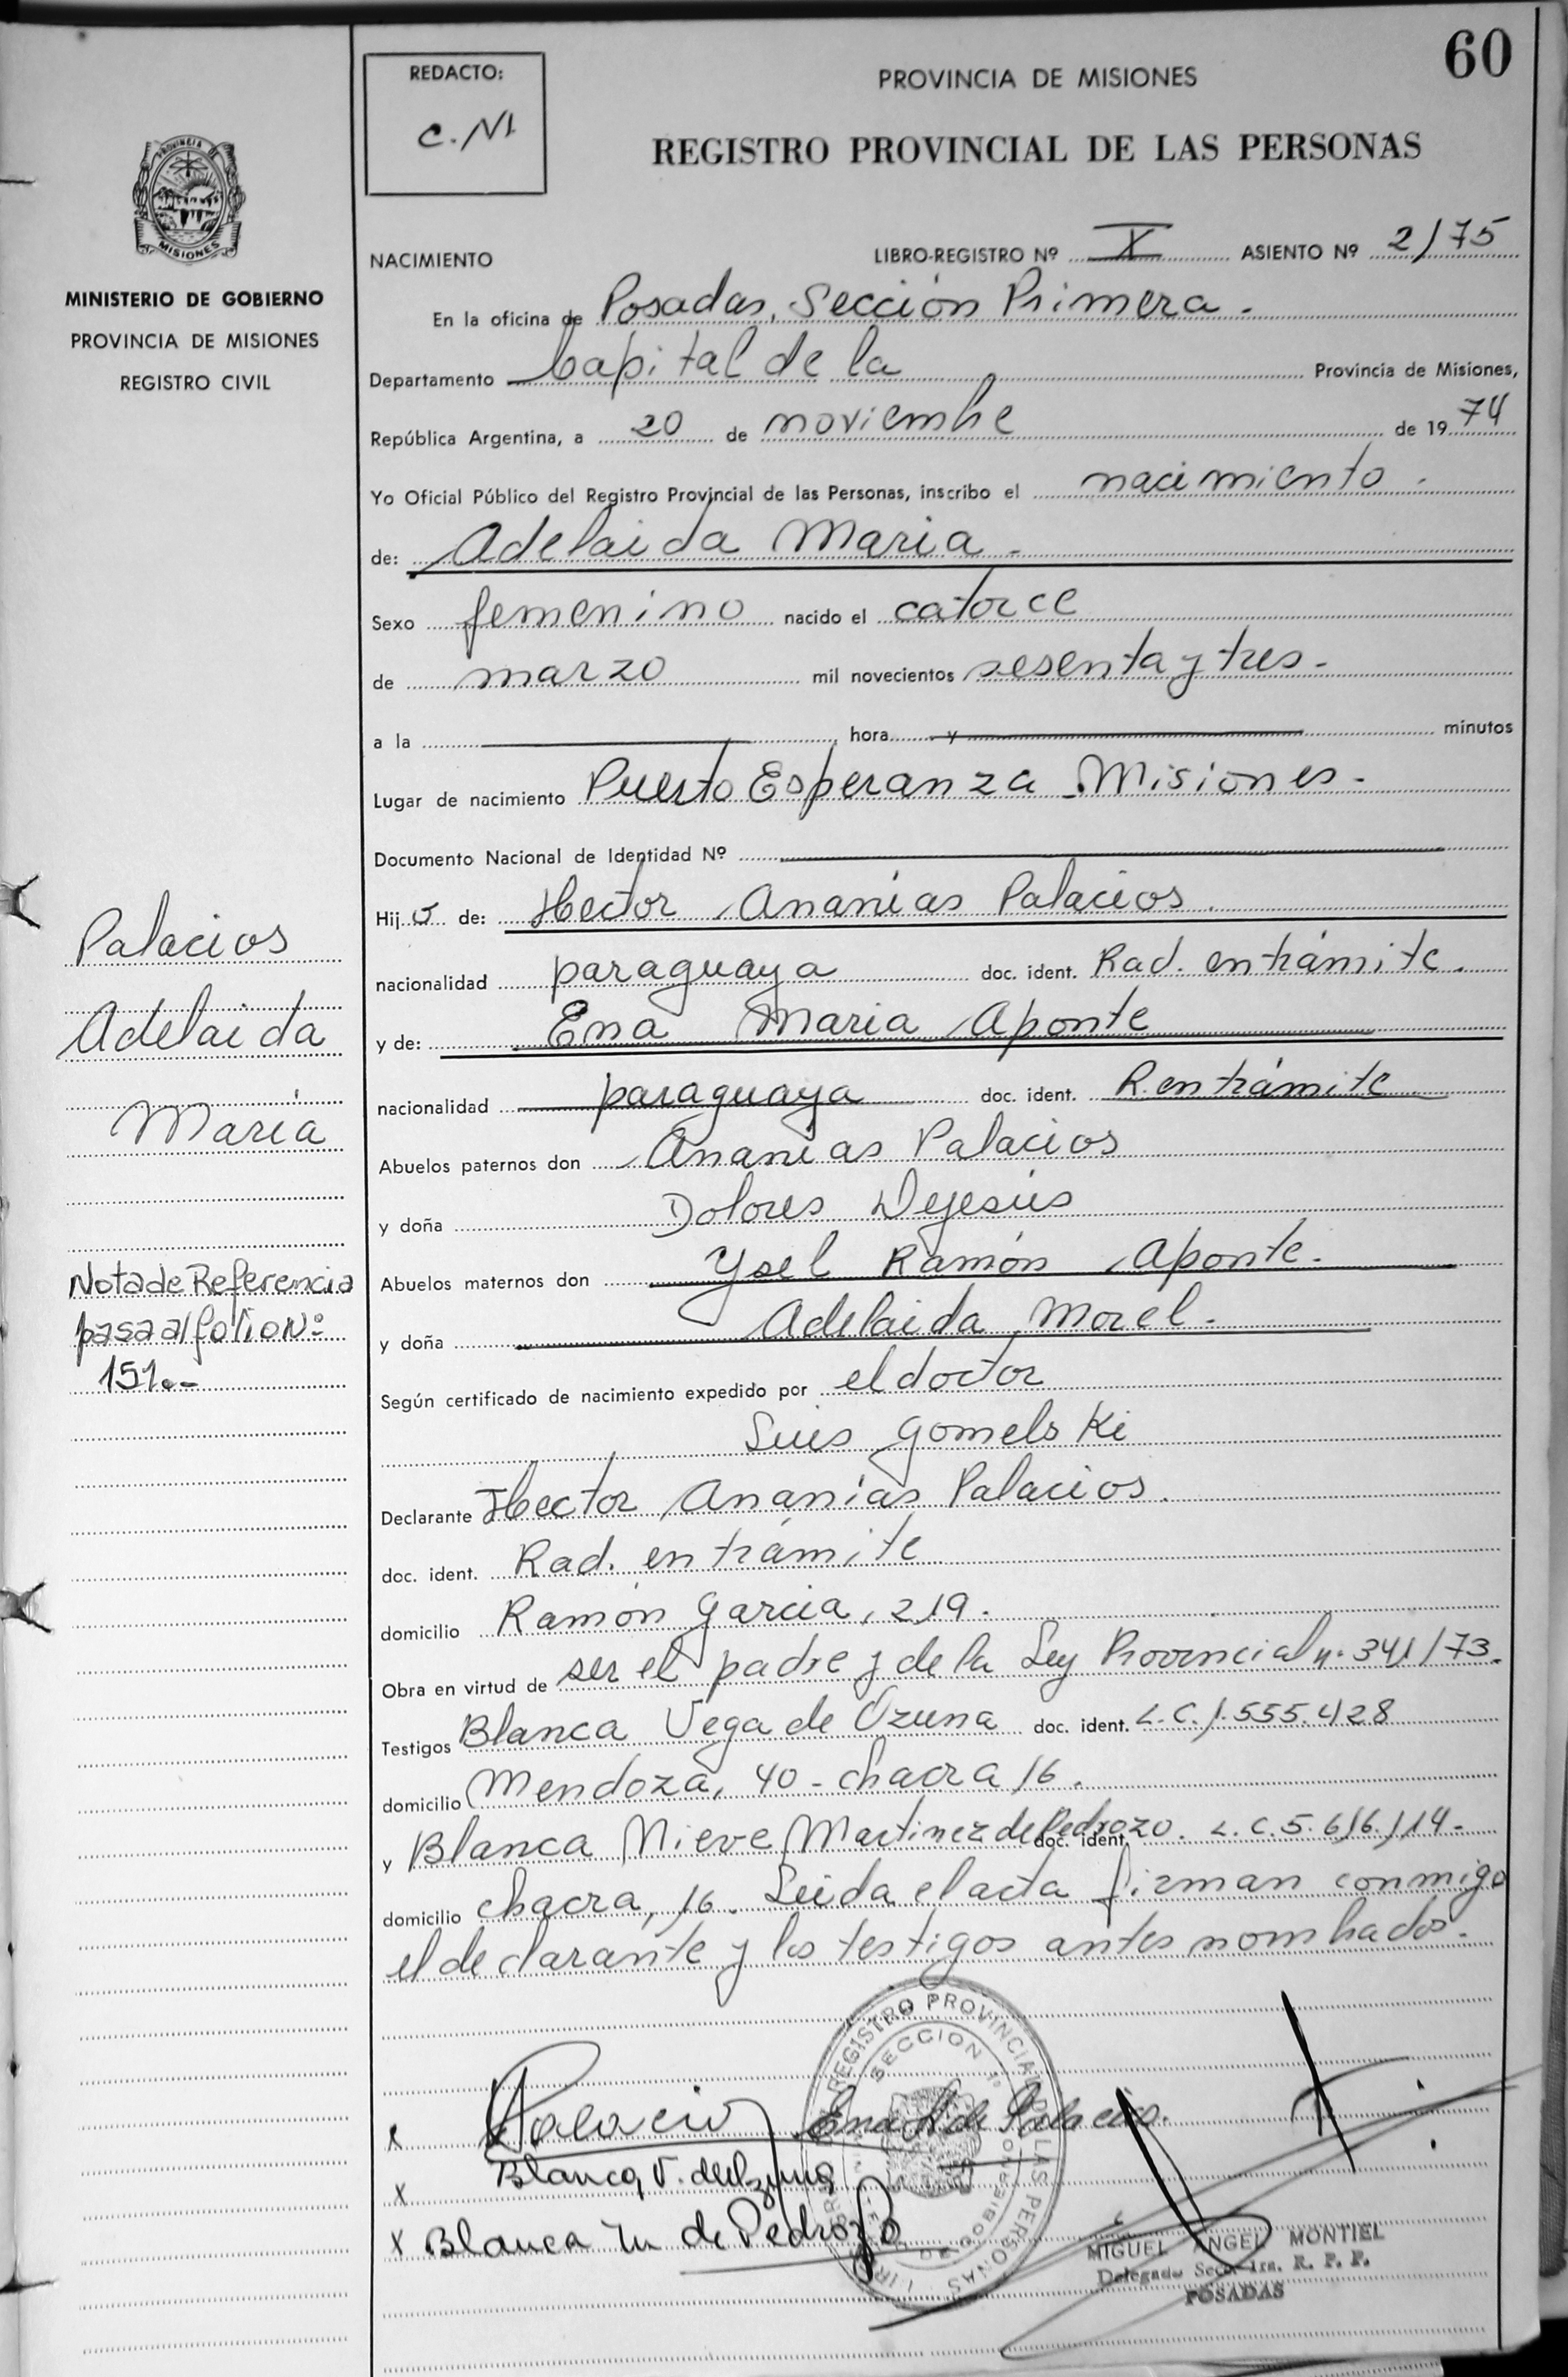 60
REDACTO:
C.M.
PROVINCIA DE MISIONES
REGISTRO PROVINCIAL DE LAS PERSONAS
PROVINCIA DE
MISIONES
MINISTERIO DE GOBIERNO
PROVINCIA DE MISIONES
REGISTRO CIVIL
NACIMIENTO LIBRO-REGISTRO Nº X ASIENTO Nº 2/75
En la oficina de Posadas, Sección Primera.
Departamento Capital de la Provincia de Misiones,
República Argentina, a 20 de noviembre de 1974
Yo Oficial Público del Registro Provincial de las Personas, inscribo el nacimiento.
de: Adelaida Maria.
Sexo femenino nacido el catorce
de marzo mil novecientos sesenta y tres.
a la hora y minutos
Lugar de nacimiento Puerto Esperanza Misiones.
Documento Nacional de Identidad Nº
Hijo de: Hector Ananias Palacios.
nacionalidad paraguaya doc. ident. Rad. en trámite.
y de: Ena Maria Aponte
nacionalidad paraguaya doc. ident. R. en trámite
Abuelos paternos don Ananias Palacios
y doña Dolores Dejesús
Abuelos maternos don Ysel Ramón Aponte.
y doña Adelaida Morel.
Según certificado de nacimiento expedido por el doctor
Luis Gomelski
Declarante Hector Ananias Palacios.
doc. ident. Rad. en trámite
domicilio Ramón Garcia, 219.
Obra en virtud de ser el padre y de la Ley Provincial nº 341/73.
Testigos Blanca Vega de Ozuna doc. ident. L.C. 1.555.428
domicilio Mendoza, 40 - chacra 16.
y Blanca Nieve Martinez de Pedrozo. doc. ident. L.C. 5.616.114.
domicilio chacra, 16. Leida el acta firman conmigo
el declarante y los testigos antes nombrados.
Palacios
Adelaida
Maria
Nota de Referencia
pasa al folio Nº
151.-
x Palacios Ena A. de Palacios.
x Blanca V. de Ozuna
x Blanca M de Pedrozo
REGISTRO PROVINCIAL DE LAS PERSONAS
SECCION 1º
MIGUEL ANGEL MONTIEL
Delegado Secc. 1ra. R. P. P.
POSADAS